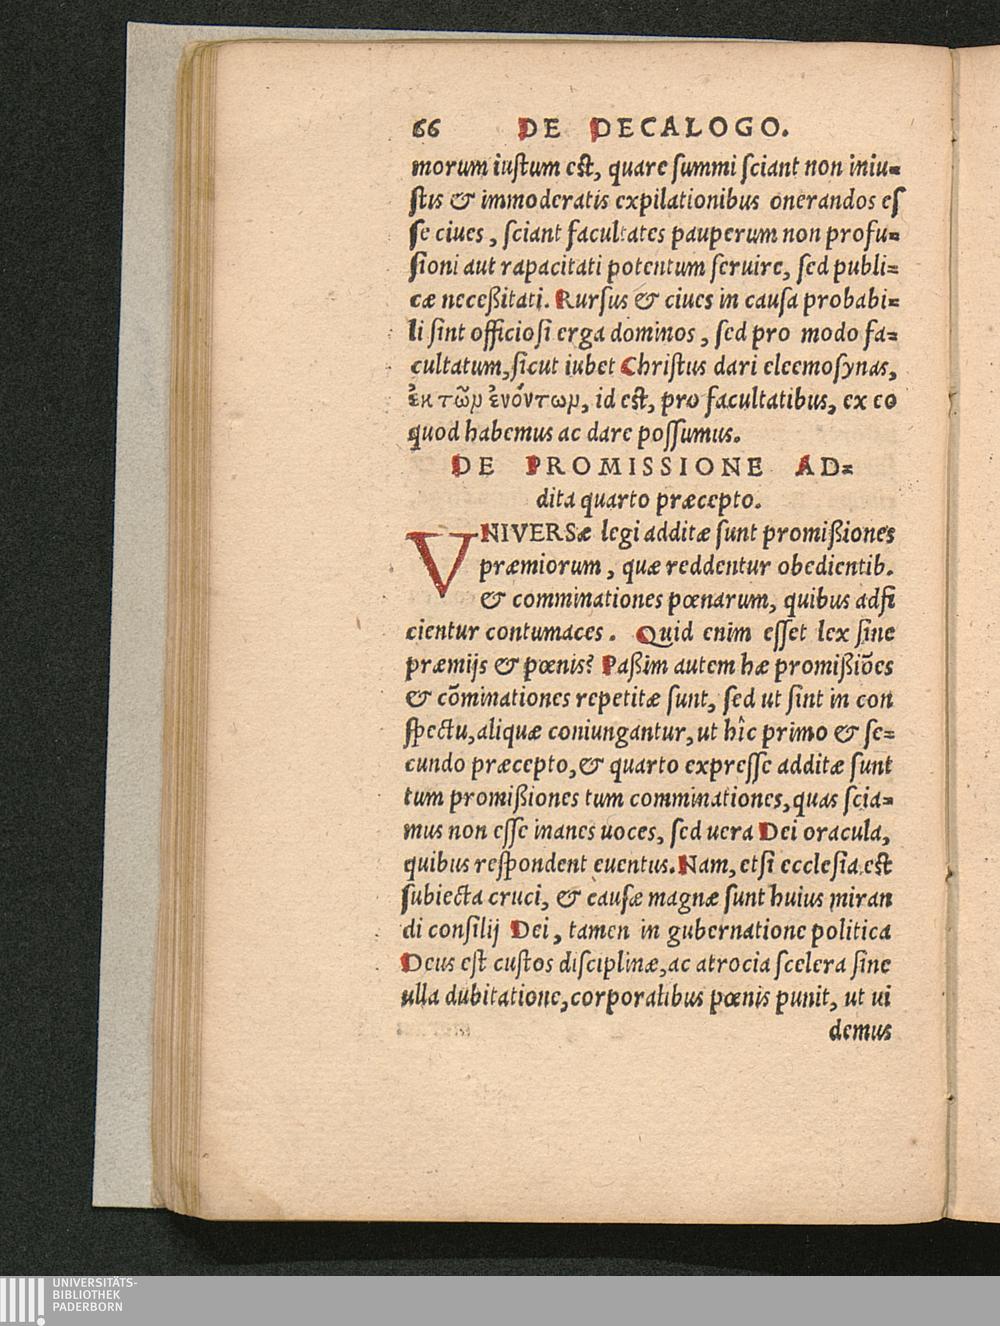 66 DE DECALOGO.
morum iustum est, quare summi sciant non iniu=
stis & immoderatis expilationibus onerandos es
se ciues, sciant facultates pauperum non profu=
sioni aut rapacitati potentum seruire, sed publi=
cæ neceßitati. Rursus & ciues in causa probabi=
li sint officiosi erga dominos, sed pro modo fa=
cultatum, sicut iubet Christus dari eleemosynas,
ἐκ τῶν ἐνόντων, id est, pro facultatibus, ex eo
quod habemus ac dare possumus.
DE PROMISSIONE AD=
dita quarto præcepto.
VNIVERSæ legi additæ sunt promißiones
præmiorum, quæ reddentur obedientib.
& comminationes pœnarum, quibus adfi
cientur contumaces. Quid enim esset lex sine
præmijs & pœnis? Paßim autem hæ promißiões
& cōminationes repetitæ sunt, sed ut sint in con
spectu, aliquæ coniungantur, ut hîc primo & se=
cundo præcepto, & quarto expresse additæ sunt
tum promißiones tum comminationes, quas scia=
mus non esse inanes uoces, sed uera Dei oracula,
quibus respondent euentus. Nam, etsi ecclesia est
subiecta cruci, & causæ magnæ sunt huius miran
di consilij Dei, tamen in gubernatione politica
Deus est custos disciplinæ, ac atrocia scelera sine
ulla dubitatione, corporalibus pœnis punit, ut ui
demus
UNIVERSITÄTS-
BIBLIOTHEK
PADERBORN